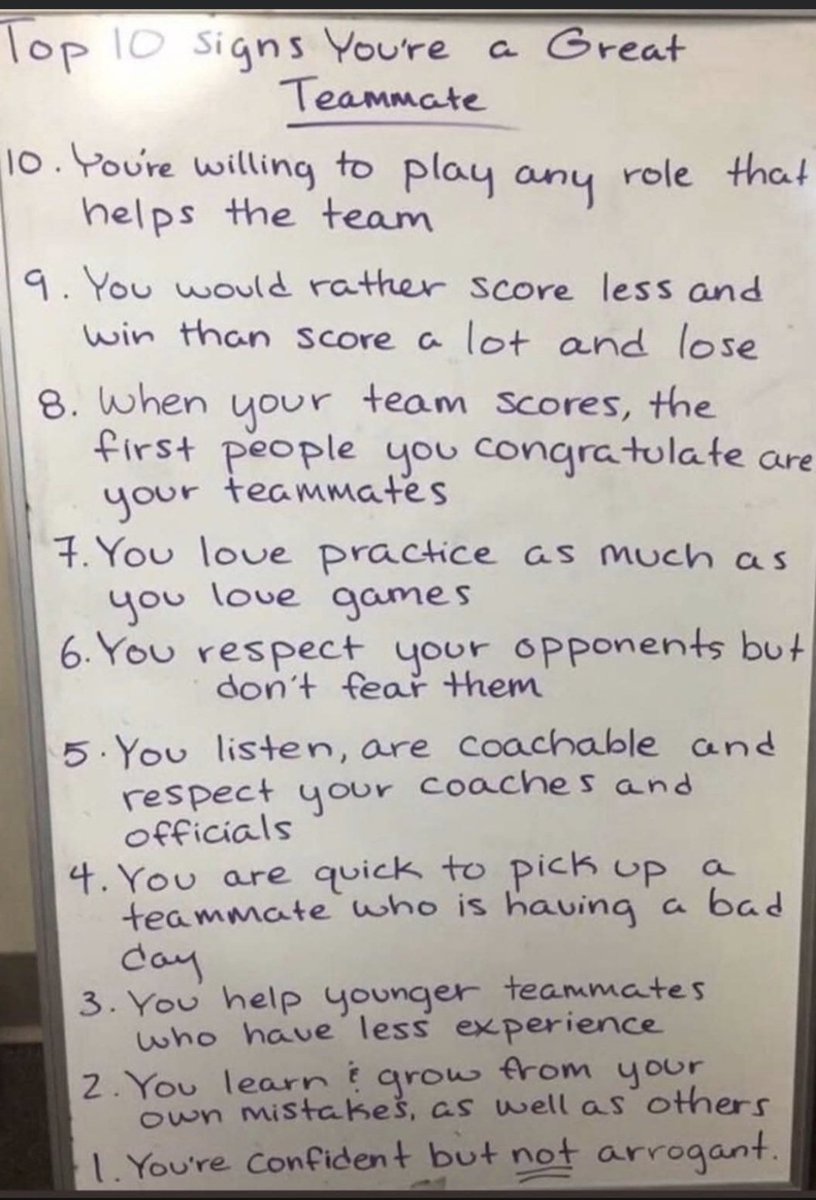 Top 10 Signs You're a Great
Teammate
10. You're willing to play any role that
helps the team
9. You would rather score less and
win than score a lot and lose
8. When your team scores, the
first people you congratulate are
your teammates
7. You love practice as much as
you love games
6. You respect your opponents but
don't fear them
5. You listen, are coachable and
respect your coaches and
officials
4. You are quick to pick up a
teammate who is having a bad
day
3. You help younger teammates
who have less experience
2. You learn & grow from your
own mistakes, as well as others
1. You're confident but not arrogant.